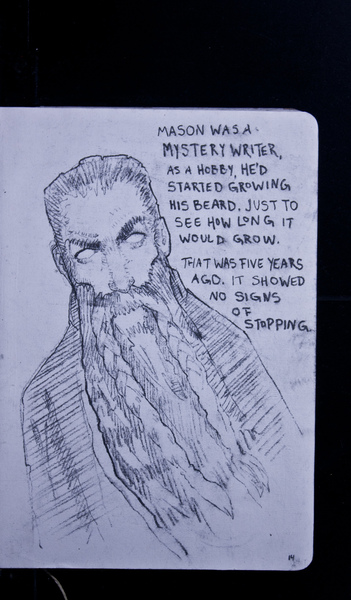 MASON WAS A
MYSTERY WRITER,
AS A HOBBY, HE'D
STARTED GROWING
HIS BEARD. JUST TO
SEE HOW LONG IT
WOULD GROW.
THAT WAS FIVE YEARS
AGO. IT SHOWED
NO SIGNS
OF
STOPPING.
14